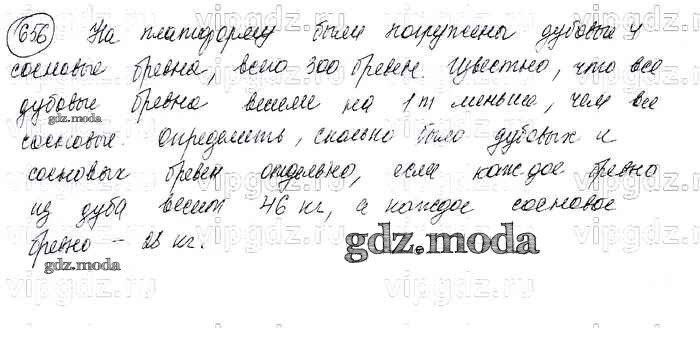 656 На платформу были погружены дубовые и
сосновые бревна, всего 300 бревен. Известно, что все
дубовые бревна весили на 1 т меньше, чем все
gdz.moda
сосновые. Определить, сколько было дубовых и
сосновых бревен отдельно, если каждое бревно
из дуба весит 46 кг, а каждое сосновое
бревно - 28 кг.
gdz.moda
gdz.moda
vipgdz.ru